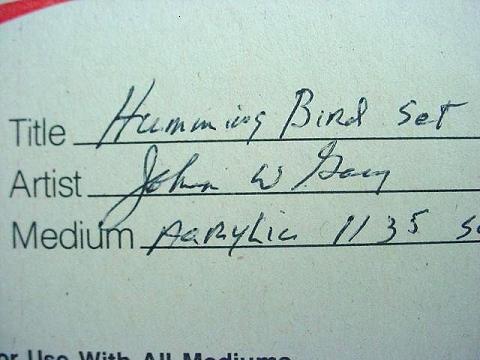 Title Humming Bird Set
Artist John W
Medium Acrylic 1135
or Use With All Mediums